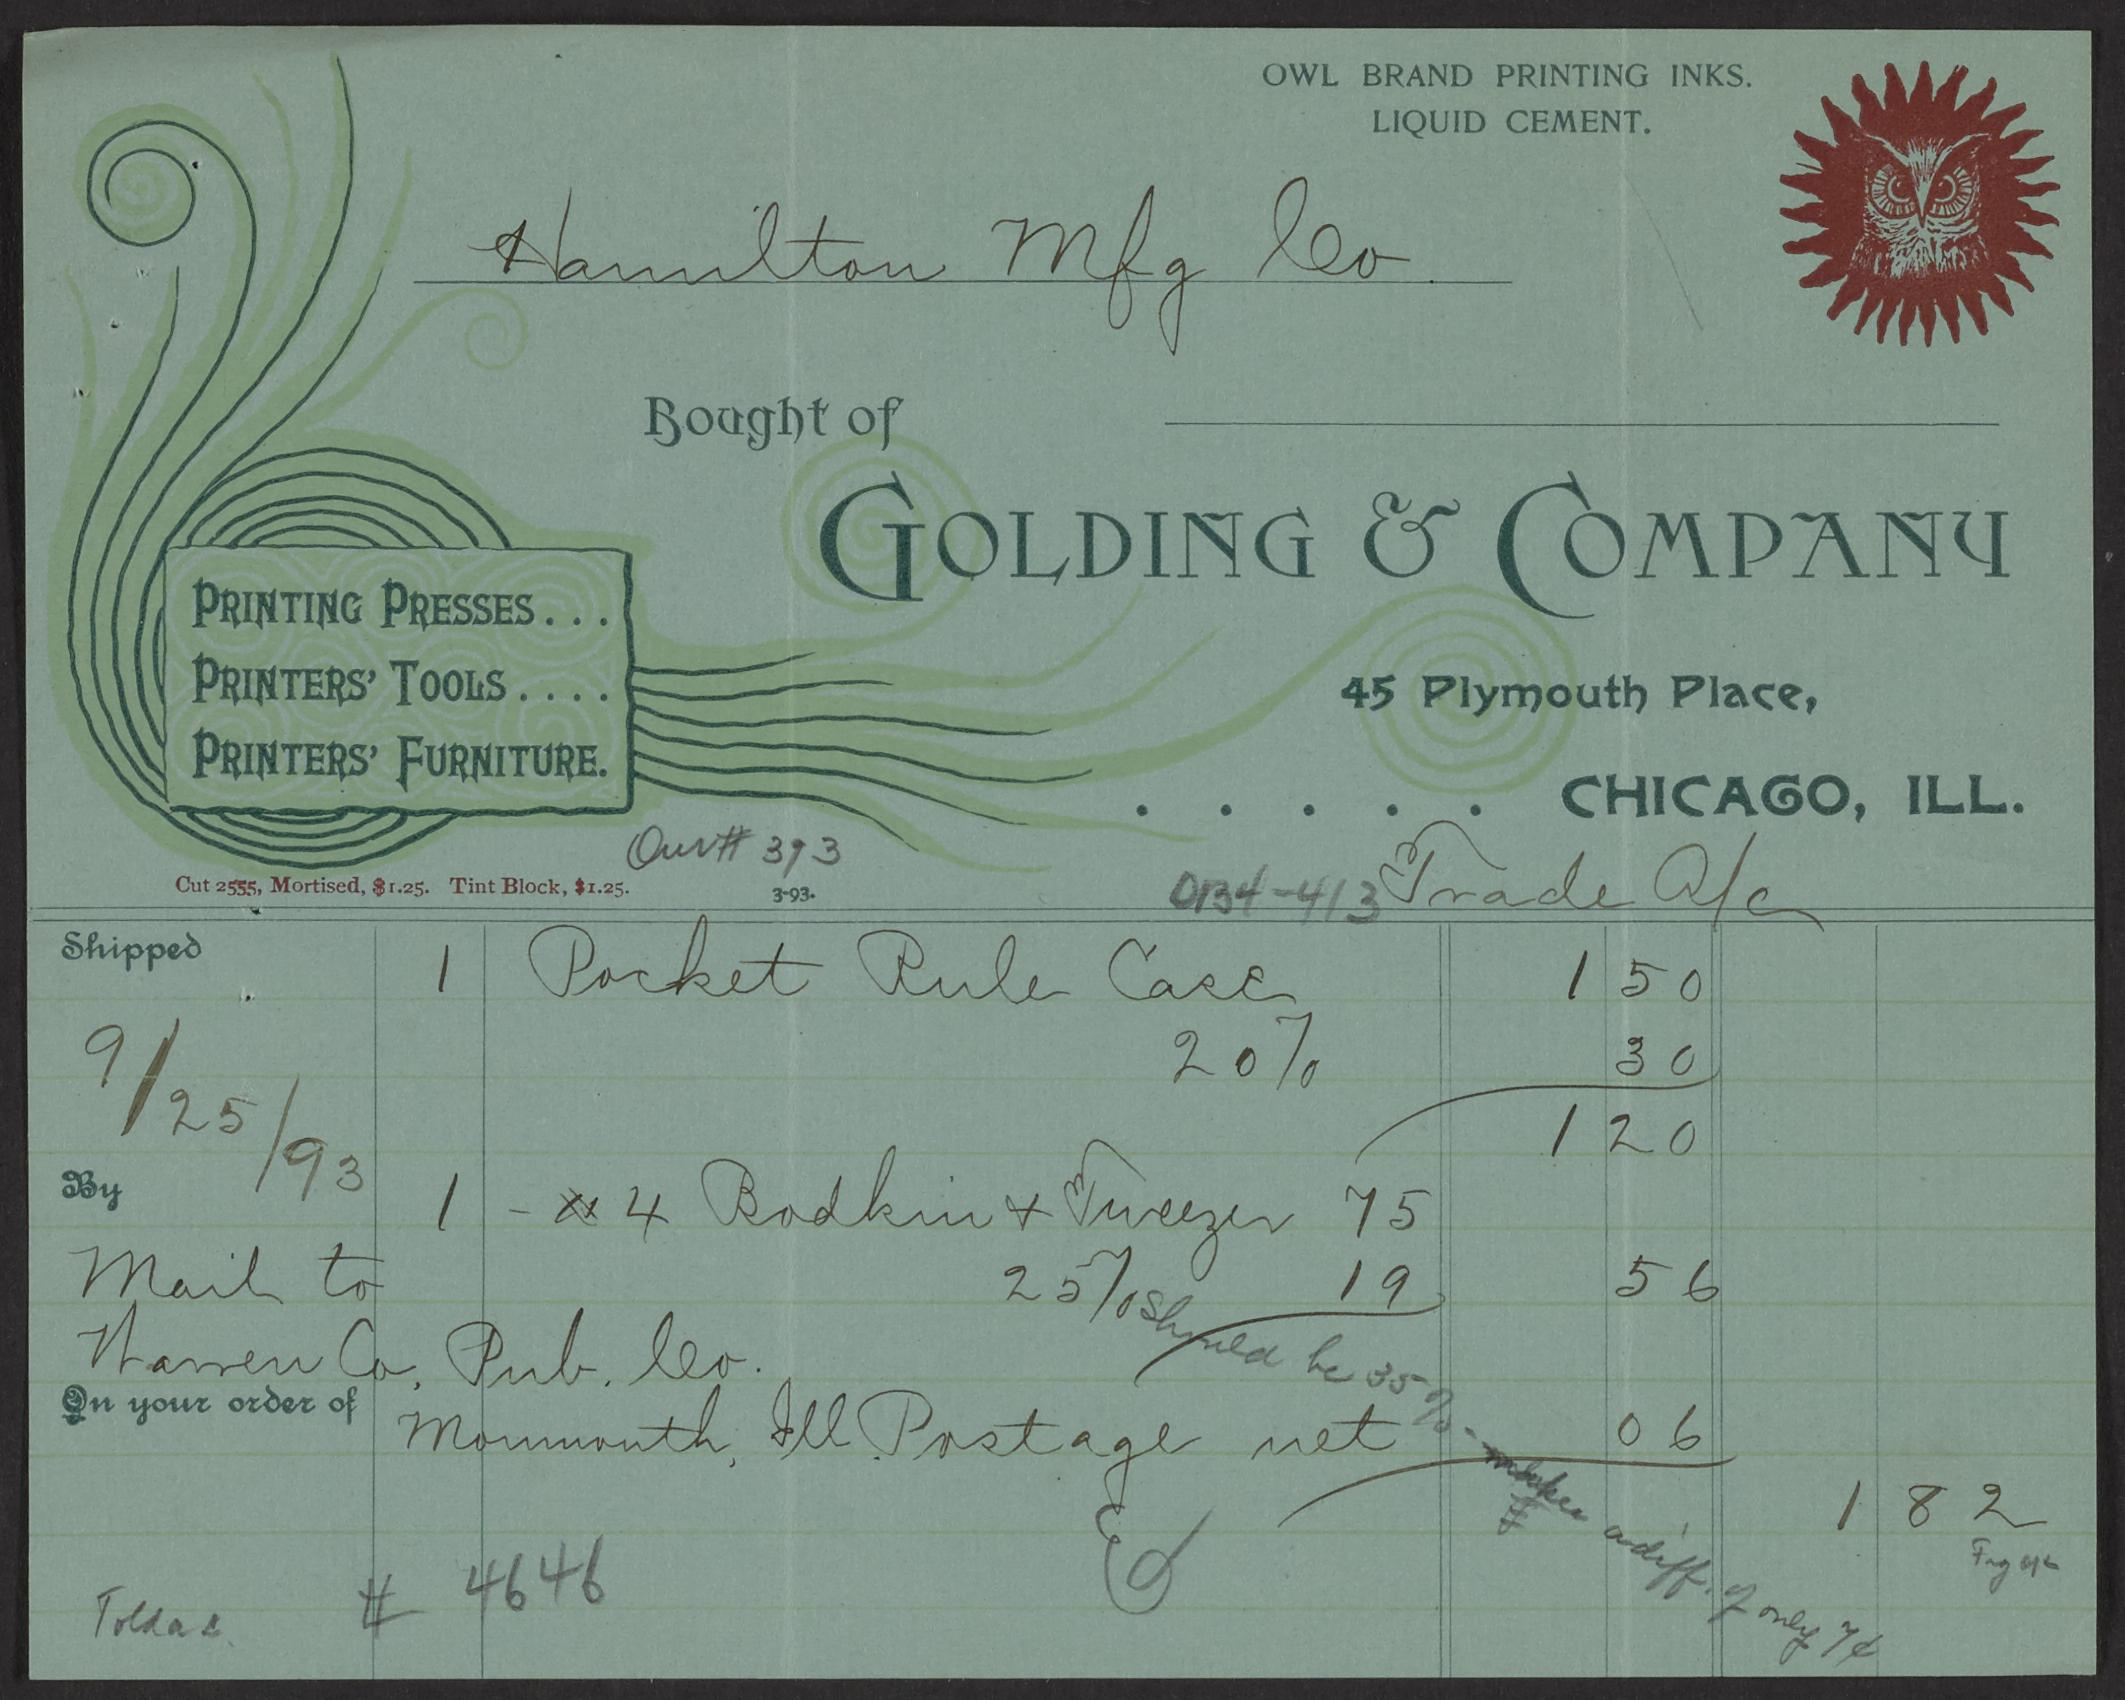 OWL BRAND PRINTING INKS.
LIQUID CEMENT.
Hamilton Mfg Co.
Bought of
GOLDING & COMPANY
PRINTING PRESSES...
PRINTERS' TOOLS....
PRINTERS' FURNITURE.
45 Plymouth Place,
..... CHICAGO, ILL.
Our # 393
Cut 2555, Mortised, $1.25. Tint Block, $1.25.
3-93.
0134-413 Trade A/c
Shipped 1 Pocket Rule Case 1 50
9/25/93
20% 30
1 20
By 1 - # 4 Bodkin & Tweezer 75
Mail to 25% 19 56
should be 35% - makes a diff. of only 7¢
Warren Co. Pub. Co.
On your order of
Monmouth, Ill Postage net 06
1 82
# 4646